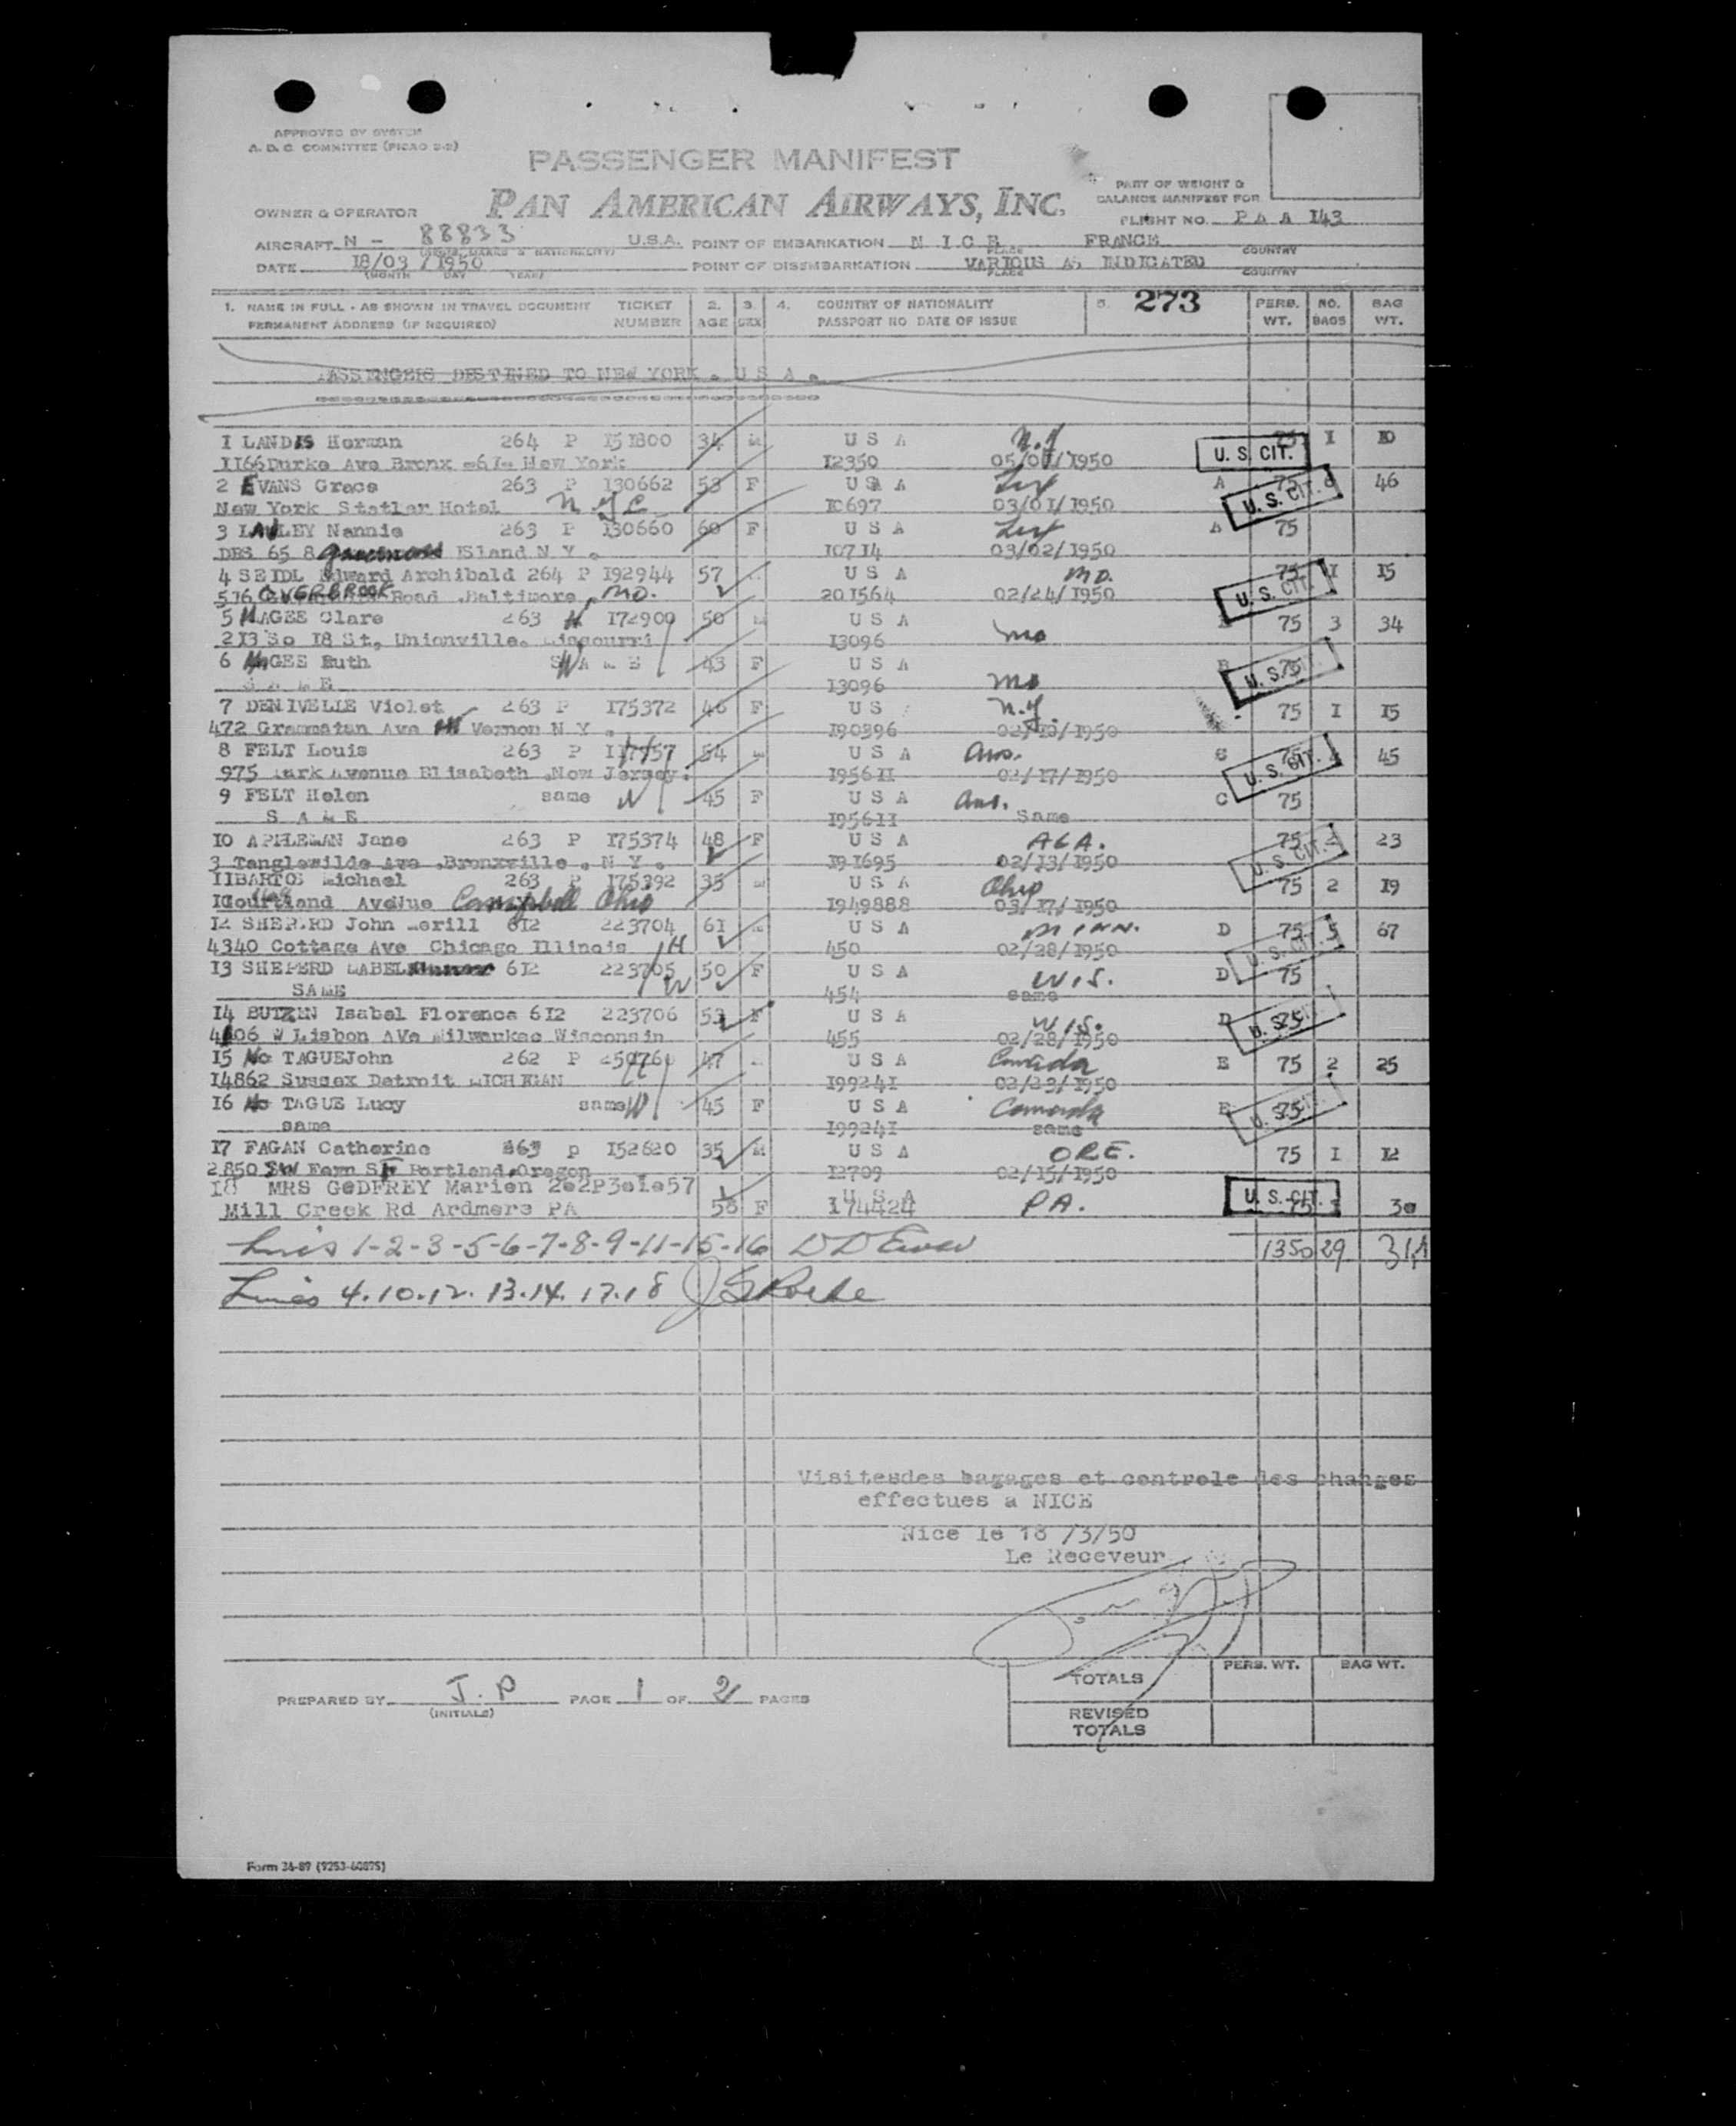 APPROVED BY SYSTEM
A. D. C. COMMITTEE (PICAO 2-2)
PASSENGER MANIFEST
PAN AMERICAN AIRWAYS, INC.
PART OF WEIGHT &
BALANCE MANIFEST FOR
FLIGHT NO. P A A 143
OWNER & OPERATOR
AIRCRAFT N - 88833 U.S.A. POINT OF EMBARKATION N I C E FRANCE
PLACE COUNTRY
DATE 18/03/1950 POINT OF DISEMBARKATION VARIOUS AS INDICATED
(MONTH DAY YEAR) PLACE COUNTRY
1. NAME IN FULL - AS SHOWN IN TRAVEL DOCUMENT TICKET 2. 3. 4. COUNTRY OF NATIONALITY 5. 273 PERS. NO. BAG
PERMANENT ADDRESS (IF REQUIRED) NUMBER AGE SEX PASSPORT NO. DATE OF ISSUE WT. BAGS WT.
PASSENGERS DESTINED TO NEW YORK . U S A .
I LANDIS Herman 264 P 151800 34 M U S A N.Y 75 I 10
1166 Burke Ave Bronx -67- New York 12350 1950 U. S. CIT.
2 EVANS Grace 263 P 130662 53 F U S A A 75 46
New York Statler Hotel N Y C 10697 03/01/1950 U. S. CIT.
3 LAWLEY Nannie 263 P 130660 60 F U S A A 75
DES 65 8 Governors Island N Y . 10714 03/02/1950
4 SEIDL Edward Archibald 264 P 192944 57 U S A MD. 75 I 15
516 OVERBROOK Road .Baltimore . MD. 201564 02/24/1950 U. S. CIT.
5 MAGEE Clare 263 H 172900 50 M U S A 75 3 34
213 So 18 St, Unionville. Missourri 13096 Mo
6 MAGEE Ruth S A M E W 43 F U S A B 75
S A M E 13096 Mo U. S. CIT.
7 DENIVELLE Violet 263 P 175372 46 F U S N.Y. 75 I 15
472 Grammatan Ave Mt Vernon N Y . 190396 02/10/1950
8 FELT Louis 263 P 54 M U S A Aus. C 75 45
975 Park Avenue Elisabeth .New Jersey. 195611 02/17/1950 U. S. CIT.
9 FELT Helen same W 45 F U S A Aus. C 75
S A M E 195611 Same
10 APPLEMAN Jane 263 P 175374 48 F U S A ALA. 75 2 23
3 Tanglewilde Ave .Bronxville . N Y . 191695 02/13/1950 U. S. CIT.
11 BARTOS Michael 263 P 175392 35 M U S A Ohio 75 2 19
Courtland Avenue Campbell Ohio 1949888 03/17/1950
12 SHEPERD John Merill 612 223704 61 M U S A MINN. D 75 5 67
4340 Cottage Ave Chicago Illinois H 450 02/28/1950 U. S. CIT.
13 SHEPERD MABEL 612 223705 50 F U S A WIS. D 75
SAME W 454 same
14 BUTZEN Isabel Florence 612 223706 53 F U S A WIS. D 75
4806 W Lisbon AVe Milwaukee Wisconsin 455 02/28/1950 U. S. CIT.
15 Mc TAGUE John 262 P 47 U S A Canada E 75 2 25
14862 Sussex Detroit MICHIGAN 199241 02/23/1950
16 Mc TAGUE Lucy same W 45 F U S A Canada E 75
same 199241 same U. S. CIT.
17 FAGAN Catherine 263 p 152620 35 M U S A ORE. 75 I 12
2850 SW Fern St Portland.Oregon 12709 02/15/1950
18 MRS GODFREY Marien 2o2P3o1o57 U S A U. S. CIT.
Mill Creek Rd Ardmere PA 58 F 174424 PA. 75 1 30
Lines 1-2-3-5-6-7-8-9-11-15-16 1350 29
Lines 4.10.12. 13.14. 17.18
Visitesdes bagages et controle des changes
effectues a NICE
Nice le 18 /3/50
Le Receveur
PREPARED BY J. P PAGE 1 OF 2 PAGES
(INITIALS)
PERS. WT. BAG WT.
TOTALS
REVISED
TOTALS
Form 36-89 (9253-60875)